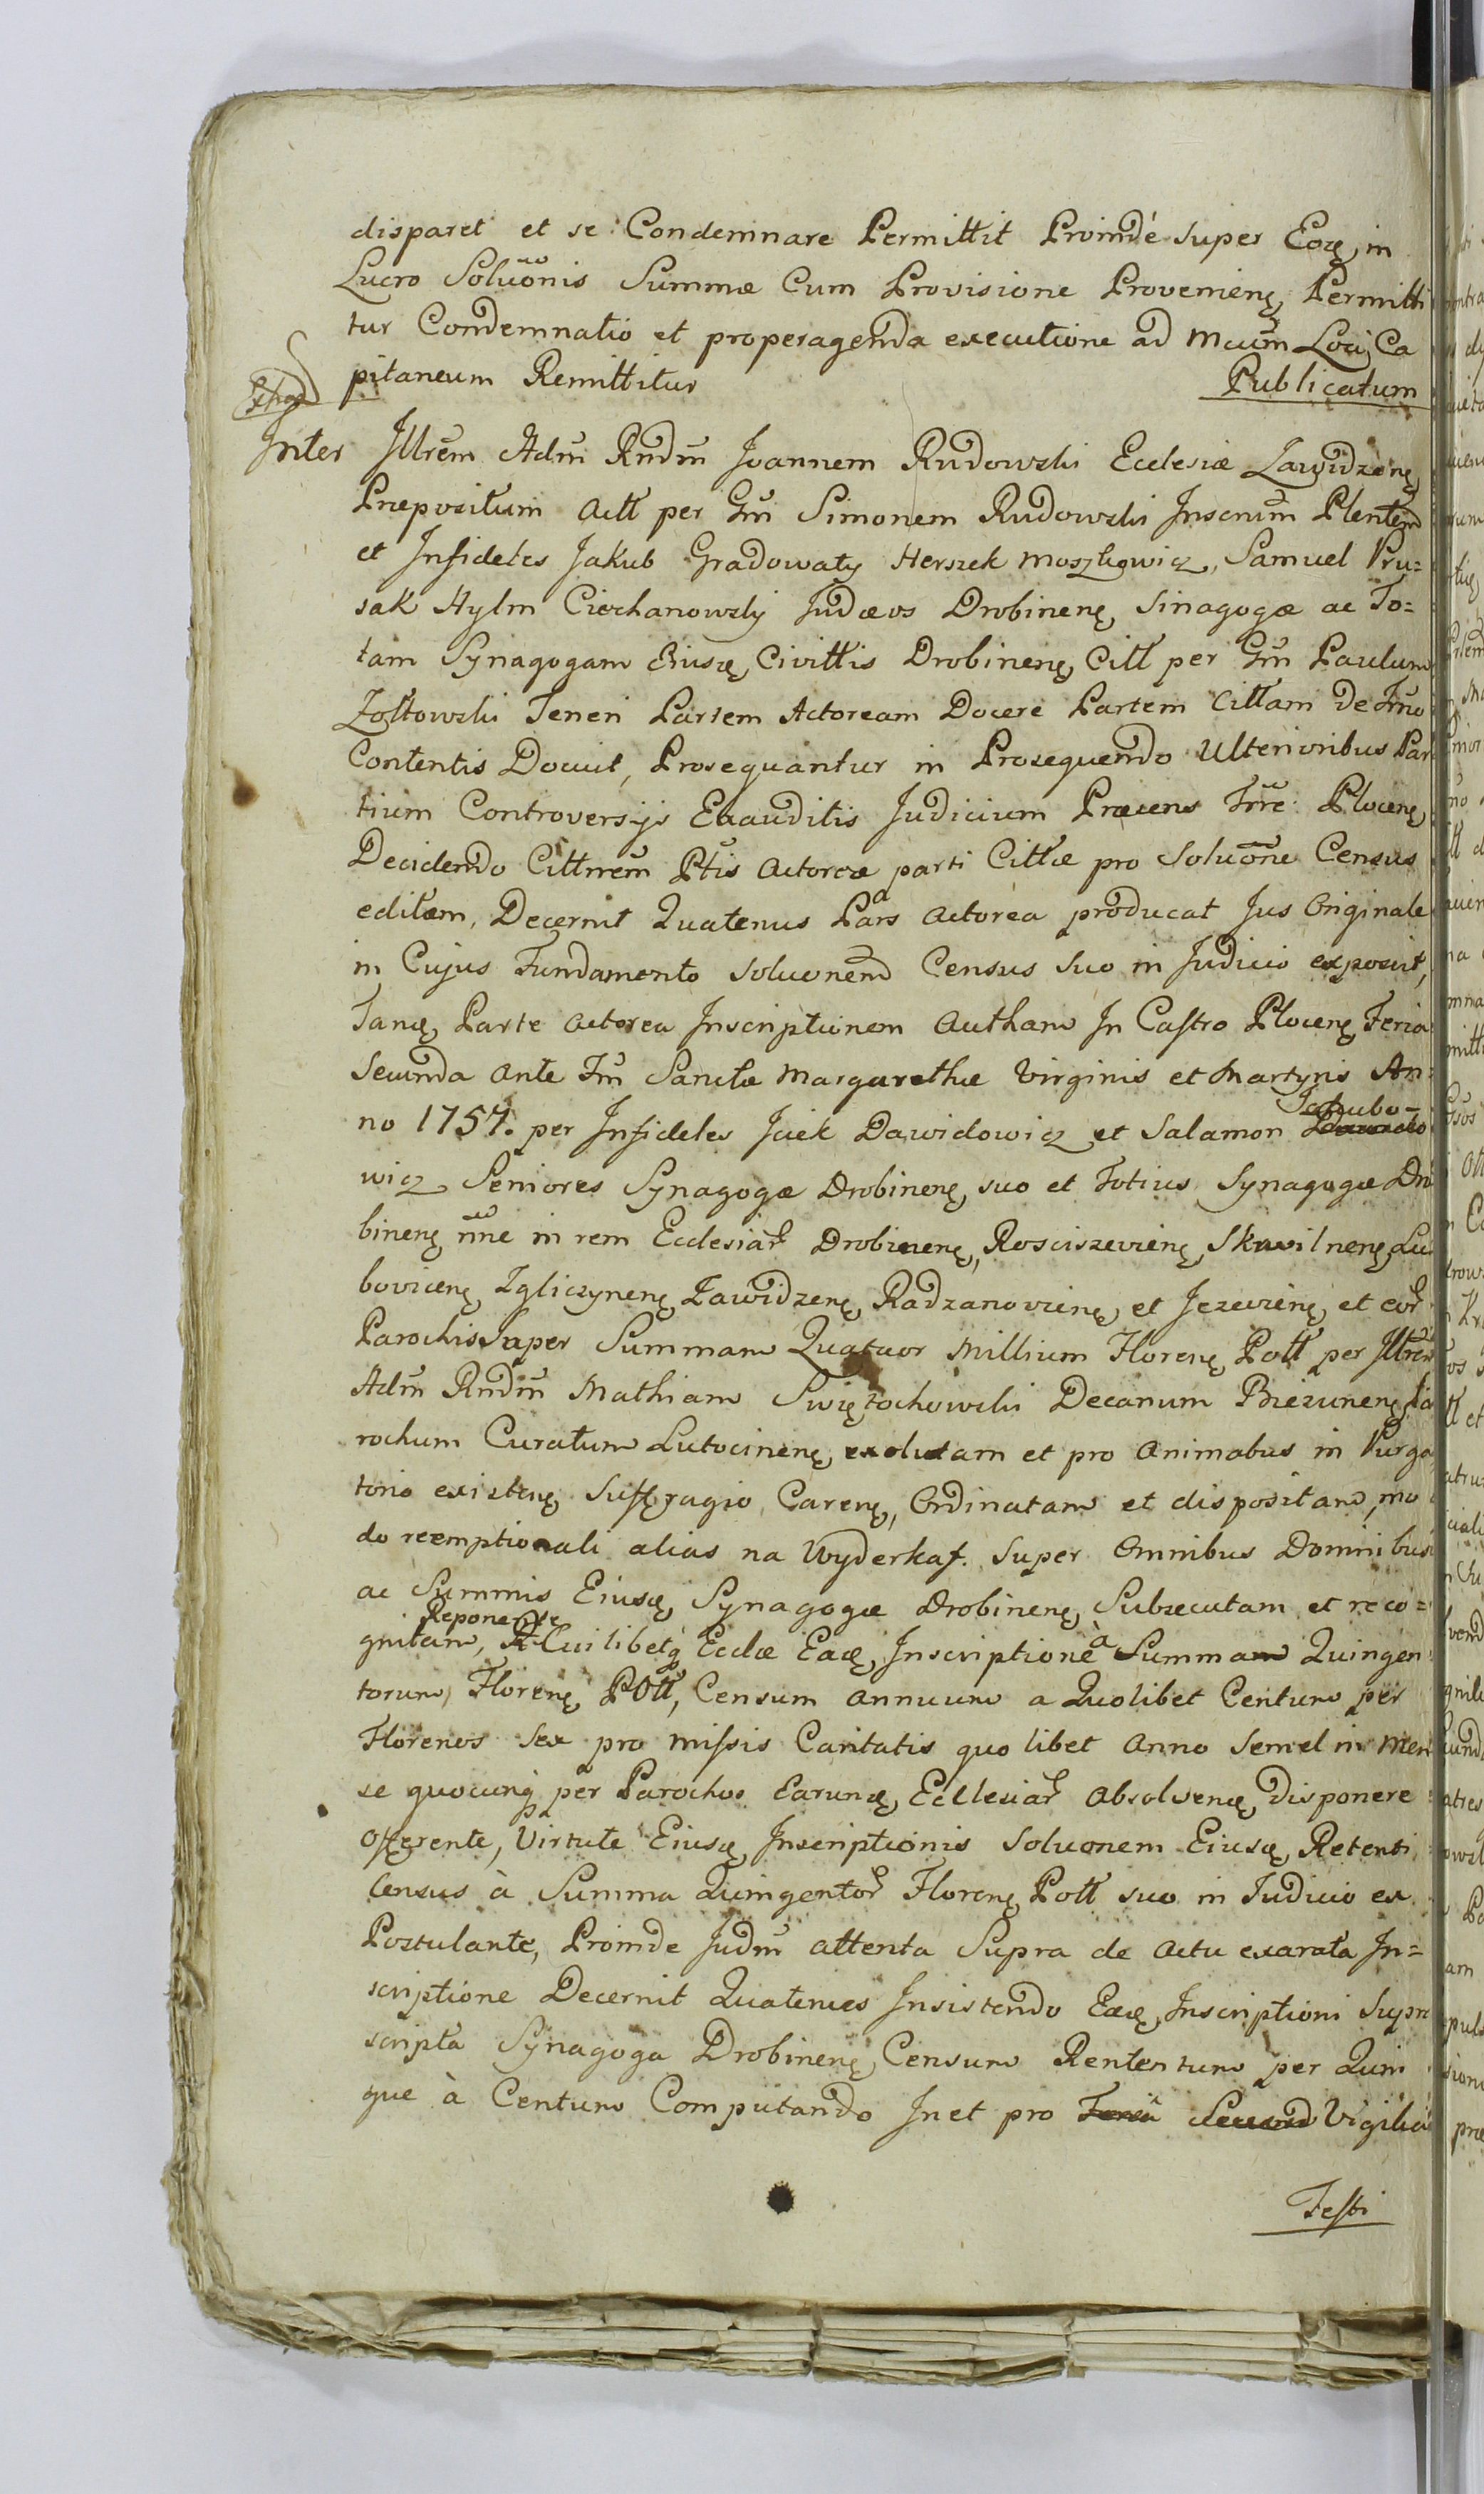 disparet et se Condemnare Permittit Proinde super Eoę in
Lucro Soluõnis Summæ Cum Provisione Provenienę Permitti
tur Condemnatio et properagenda executione ad Mcum Loci Ca
pitaneum Remittitur Publicatum
Inter Jllrẽm Adm̃ Rndm̃ Joannem Rudowski Ecclesiæ Zawidzenę
Præpositum Actt per Gm̃ Simonem Rudowski Plentem
et Infideles Jakub Gradowaty Herszek Moszkowicz, Samuel Pru=
sak Hylm Ciechanowsky Judæos Drobinenę Sinagogæ ac To=
tam Synagogam Eiusę Civittis Drobinenę Citt per Gm̃ Paulum
Zołtowski Teneri Partem Actoream Docere Partem Cittam De Tm̃o
Contentis Docuit, Prosequantur in Prosequendo Ulterioribus Par
tium Controversijs Exauditis Judicium Præcens Trr̃e Plocenę
Decidendo Cittnem̃ Ptis Actoreæ parti Cittæ pro Soluõne Census
editam, Decernit Quatenus Pars Actorea producat Jus Originale
in Cujus Fundamento soluonem Census suo in Judicio exposcit,
Tanę Parte Actorea Inscriptionem Autham In Castro Plocenę Feria
Secunda Ante Fm̃ Sanctæ Margarethæ Virginis et Martyris An=
no 1757. per Infideles Jcek Dawidowicz et Salamon Jakubo-
wicz Seniores Synagogæ Drobinenę, suo et Totius Synagogæ Dro
binenę ñne in rem Ecclesiar Drobinenę, Rosciszevienę, Skrwilnenę, Lu
bovicenę Zgliczynenę Zawidzenę Radzanovienę et Jezevienę et eor
Parochis Super Summam Quatuor Millium Florenę Poll per Jllrem
Adm̃ Rndm̃ Mathiam Swiętochowski Decanum Biezunenę Pa
rochum Curatum Lutocinenę exolutam et pro Animabus in Purga
torio existenę Suffragio Carenę, Ordinatam et dispositam, mo
do reemptionali alias na Wyderkaf. super Omnibus Domibus
ac Summis Eiusę, Synagogæ Drobinenę, Subsecutam et reco=
gnitam, Reponente Cuilibetq Ecclæ Eaę, Inscriptione à Summa Quingen
torum Florenę POll, Censum annuum a Quolibet Centum per
Florenos Sex pro missis Caritatis quo libet Anno Semel in Men
se quocunq per Parochos Earunę, Ecclesiar Absolvenę, disponere
Offerente, Virtute Eiusę Inscriptionis Soluonem Eiusę, Retenti
Census à Summa Quingentor Florenę Poll suo in Judicio ex
Postulante, Proinde Judm̃ attenta Supra de Actu exarata In=
scriptione Decernit Quatenus Insistendo Eaę, Inscriptioni Supra
scripta Synagoga Drobinenę, Censum Rententum per Quin
que à Centum Computando In et pro Vigilia
Festi